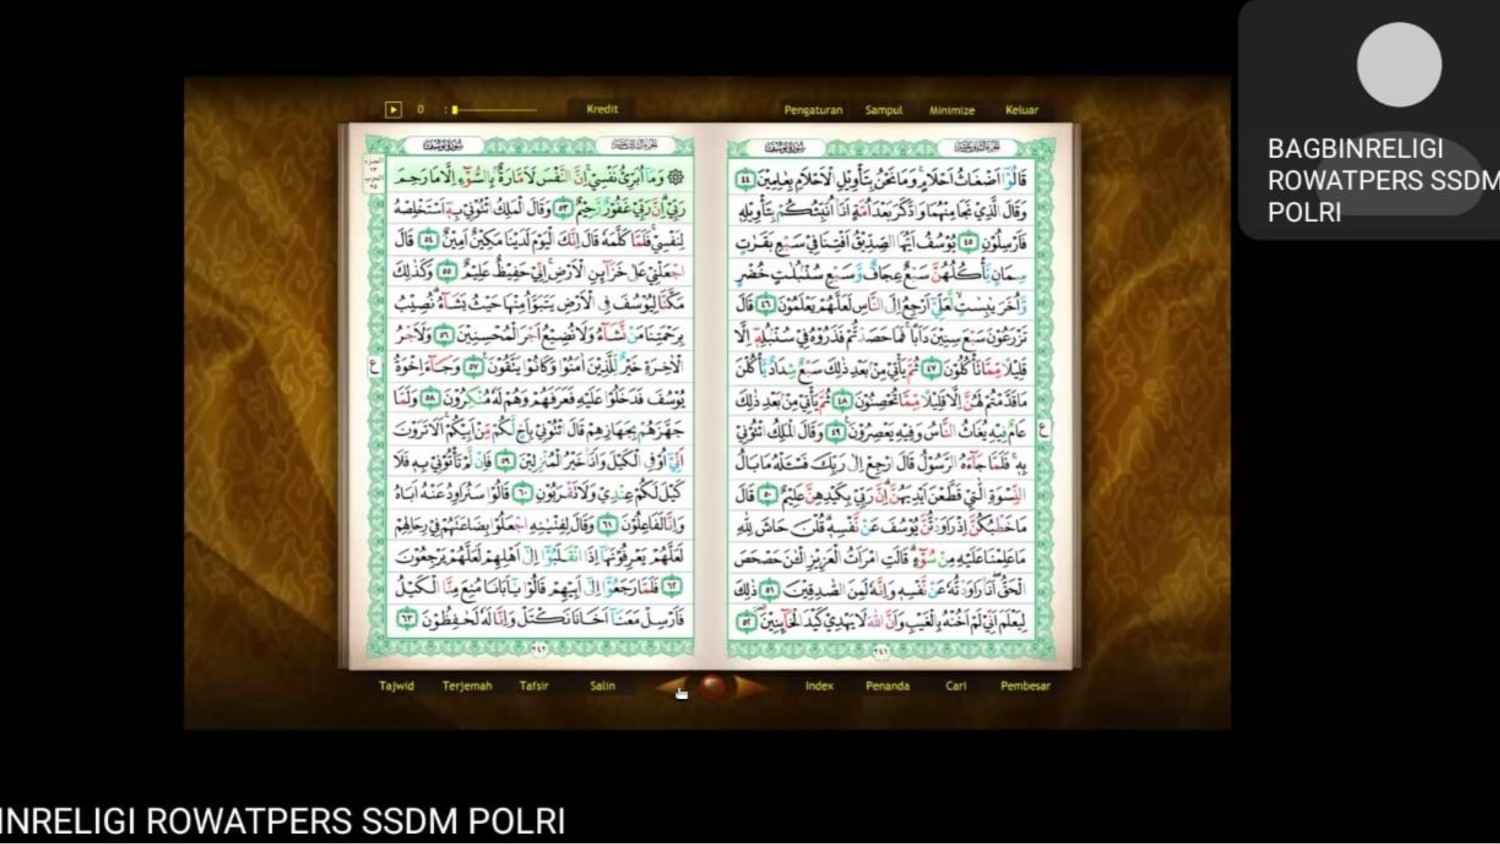 0 :
Kredit
Pengaturan Sampul Minimize Keluar
BAGBINRELIGI
ROWATPERS SSDM
POLRI
سورة يوسف
قَالُوْٓا اَضْغَاثُ اَحْلَامٍ وَمَا نَحْنُ بِتَأْوِيْلِ الْاَحْلَامِ بِعٰلِمِيْنَ ٤٤
وَقَالَ الَّذِيْ نَجَا مِنْهُمَا وَادَّكَرَ بَعْدَ اُمَّةٍ اَنَا۠ اُنَبِّئُكُمْ بِتَأْوِيْلِهٖ
فَاَرْسِلُوْنِ ٤٥ يُوْسُفُ اَيُّهَا الصِّدِّيْقُ اَفْتِنَا فِيْ سَبْعِ بَقَرٰتٍ
سِمَانٍ يَّأْكُلُهُنَّ سَبْعٌ عِجَافٌ وَّسَبْعِ سُنْۢبُلٰتٍ خُضْرٍ
وَّاُخَرَ يٰبِسٰتٍ لَّعَلِّيْٓ اَرْجِعُ اِلَى النَّاسِ لَعَلَّهُمْ يَعْلَمُوْنَ ٤٦ قَالَ
تَزْرَعُوْنَ سَبْعَ سِنِيْنَ دَاَبًا فَمَا حَصَدْتُّمْ فَذَرُوْهُ فِيْ سُنْۢبُلِهٖٓ اِلَّا
قَلِيْلًا مِّمَّا تَأْكُلُوْنَ ٤٧ ثُمَّ يَأْتِيْ مِنْۢ بَعْدِ ذٰلِكَ سَبْعٌ شِدَادٌ يَّأْكُلْنَ
مَا قَدَّمْتُمْ لَهُنَّ اِلَّا قَلِيْلًا مِّمَّا تُحْصِنُوْنَ ٤٨ ثُمَّ يَأْتِيْ مِنْۢ بَعْدِ ذٰلِكَ
عَامٌ فِيْهِ يُغَاثُ النَّاسُ وَفِيْهِ يَعْصِرُوْنَ ٤٩ وَقَالَ الْمَلِكُ ائْتُوْنِيْ
ع
بِهٖ فَلَمَّا جَاۤءَهُ الرَّسُوْلُ قَالَ ارْجِعْ اِلٰى رَبِّكَ فَسْـَٔلْهُ مَا بَالُ
النِّسْوَةِ الّٰتِيْ قَطَّعْنَ اَيْدِيَهُنَّ اِنَّ رَبِّيْ بِكَيْدِهِنَّ عَلِيْمٌ ٥٠ قَالَ
مَا خَطْبُكُنَّ اِذْ رَاوَدْتُّنَّ يُوْسُفَ عَنْ نَّفْسِهٖ قُلْنَ حَاشَ لِلّٰهِ
مَا عَلِمْنَا عَلَيْهِ مِنْ سُوْۤءٍ قَالَتِ امْرَاَتُ الْعَزِيْزِ الْـٰٔنَ حَصْحَصَ
الْحَقُّ اَنَا۠ رَاوَدْتُّهٗ عَنْ نَّفْسِهٖ وَاِنَّهٗ لَمِنَ الصّٰدِقِيْنَ ٥١ ذٰلِكَ
لِيَعْلَمَ اَنِّيْ لَمْ اَخُنْهُ بِالْغَيْبِ وَاَنَّ اللّٰهَ لَا يَهْدِيْ كَيْدَ الْخَاۤىِٕنِيْنَ ٥٢
٢٤١
سورة يوسف
۞ وَمَآ اُبَرِّئُ نَفْسِيْ اِنَّ النَّفْسَ لَاَمَّارَةٌۢ بِالسُّوْۤءِ اِلَّا مَا رَحِمَ
رَبِّيْ اِنَّ رَبِّيْ غَفُوْرٌ رَّحِيْمٌ ٥٣ وَقَالَ الْمَلِكُ ائْتُوْنِيْ بِهٖٓ اَسْتَخْلِصْهُ
لِنَفْسِيْ فَلَمَّا كَلَّمَهٗ قَالَ اِنَّكَ الْيَوْمَ لَدَيْنَا مَكِيْنٌ اَمِيْنٌ ٥٤ قَالَ
اجْعَلْنِيْ عَلٰى خَزَاۤىِٕنِ الْاَرْضِ اِنِّيْ حَفِيْظٌ عَلِيْمٌ ٥٥ وَكَذٰلِكَ
مَكَّنَّا لِيُوْسُفَ فِى الْاَرْضِ يَتَبَوَّاُ مِنْهَا حَيْثُ يَشَاۤءُ نُصِيْبُ
بِرَحْمَتِنَا مَنْ نَّشَاۤءُ وَلَا نُضِيْعُ اَجْرَ الْمُحْسِنِيْنَ ٥٦ وَلَاَجْرُ
الْاٰخِرَةِ خَيْرٌ لِّلَّذِيْنَ اٰمَنُوْا وَكَانُوْا يَتَّقُوْنَ ٥٧ وَجَاۤءَ اِخْوَةُ
ع
يُوْسُفَ فَدَخَلُوْا عَلَيْهِ فَعَرَفَهُمْ وَهُمْ لَهٗ مُنْكِرُوْنَ ٥٨ وَلَمَّا
جَهَّزَهُمْ بِجَهَازِهِمْ قَالَ ائْتُوْنِيْ بِاَخٍ لَّكُمْ مِّنْ اَبِيْكُمْ اَلَا تَرَوْنَ
اَنِّيْٓ اُوْفِى الْكَيْلَ وَاَنَا۠ خَيْرُ الْمُنْزِلِيْنَ ٥٩ فَاِنْ لَّمْ تَأْتُوْنِيْ بِهٖ فَلَا
كَيْلَ لَكُمْ عِنْدِيْ وَلَا تَقْرَبُوْنِ ٦٠ قَالُوْا سَنُرَاوِدُ عَنْهُ اَبَاهُ
وَاِنَّا لَفَاعِلُوْنَ ٦١ وَقَالَ لِفِتْيٰنِهِ اجْعَلُوْا بِضَاعَتَهُمْ فِيْ رِحَالِهِمْ
لَعَلَّهُمْ يَعْرِفُوْنَهَآ اِذَا انْقَلَبُوْٓا اِلٰٓى اَهْلِهِمْ لَعَلَّهُمْ يَرْجِعُوْنَ
٦٢ فَلَمَّا رَجَعُوْٓا اِلٰٓى اَبِيْهِمْ قَالُوْا يٰٓاَبَانَا مُنِعَ مِنَّا الْكَيْلُ
فَاَرْسِلْ مَعَنَآ اَخَانَا نَكْتَلْ وَاِنَّا لَهٗ لَحٰفِظُوْنَ ٦٣
٢٤٢
Tajwid Terjemah Tafsir Salin
Index Penanda Cari Pembesar
INRELIGI ROWATPERS SSDM POLRI